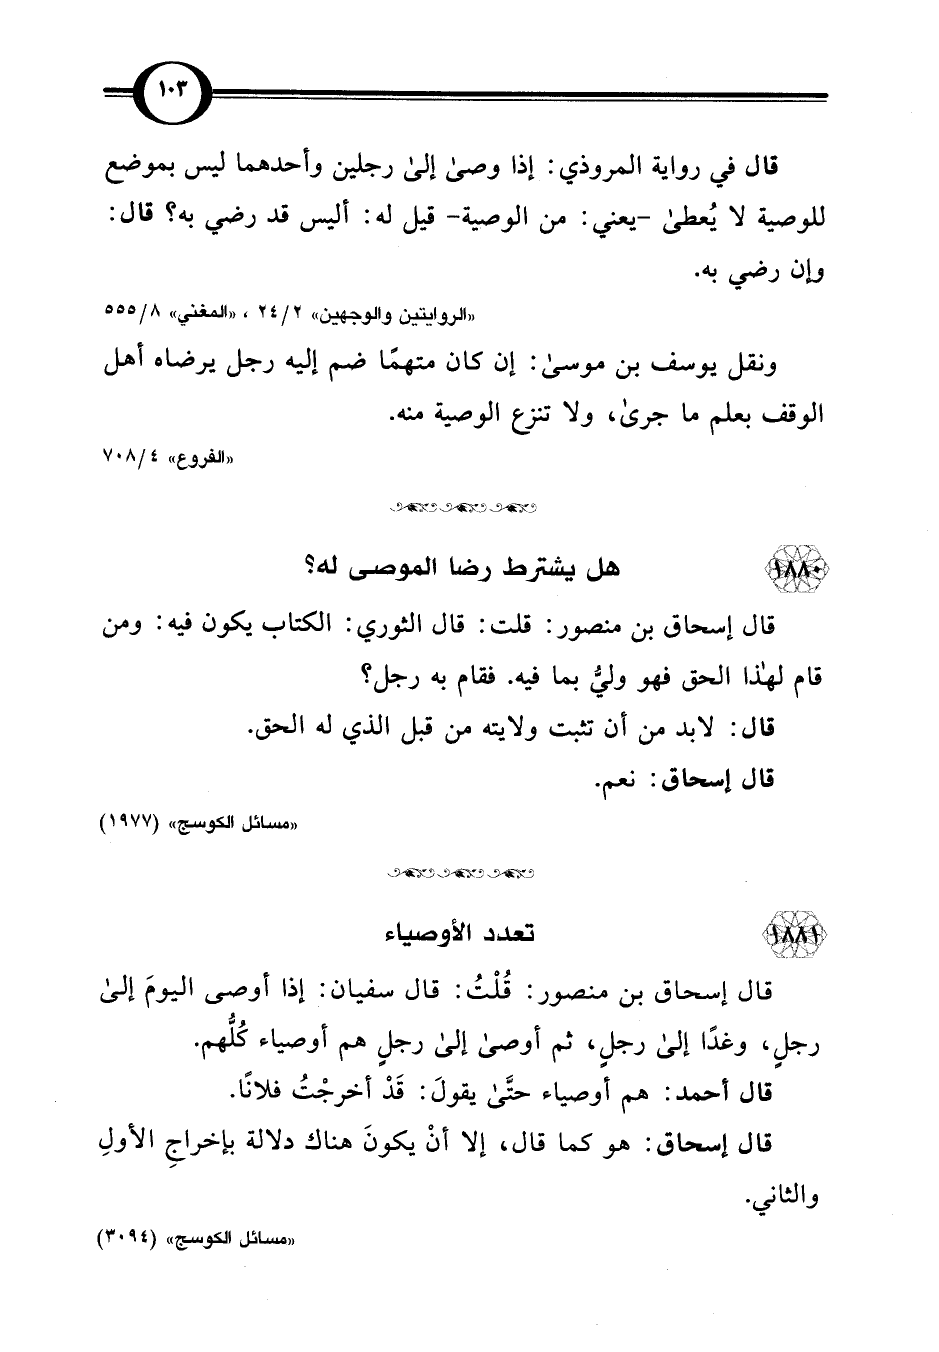 ١٠٣
قال في رواية المروذي: إذا وصىٰ إلىٰ رجلين وأحدهما ليس بموضع
للوصية لا يُعطىٰ -يعني: من الوصية- قيل له: أليس قد رضي به؟ قال:
وإن رضي به.
«الروايتين والوجهين» ٢/ ٢٤ ، «المغني» ٨/ ٥٥٥
ونقل يوسف بن موسىٰ: إن كان متهمًا ضم إليه رجل يرضاه أهل
الوقف بعلم ما جرىٰ، ولا تنزع الوصية منه.
«الفروع» ٤/ ٧٠٨
١٨٨٠ هل يشترط رضا الموصى له؟
قال إسحاق بن منصور: قلت: قال الثوري: الكتاب يكون فيه: ومن
قام لهٰذا الحق فهو وليُّ بما فيه. فقام به رجل؟
قال: لابد من أن تثبت ولايته من قبل الذي له الحق.
قال إسحاق: نعم.
«مسائل الكوسج» (١٩٧٧)
١٨٨١ تعدد الأوصياء
قال إسحاق بن منصور: قُلْتُ: قال سفيان: إذا أوصى اليومَ إلىٰ
رجلٍ، وغدًا إلىٰ رجلٍ، ثم أوصىٰ إلىٰ رجلٍ هم أوصياء كُلُّهم.
قال أحمد: هم أوصياء حتَّىٰ يقولَ: قَدْ أخرجْتُ فلانًا.
قال إسحاق: هو كما قال، إلا أنْ يكونَ هناك دلالة بإخراجِ الأولِ
والثاني.
«مسائل الكوسج» (٣٠٩٤)